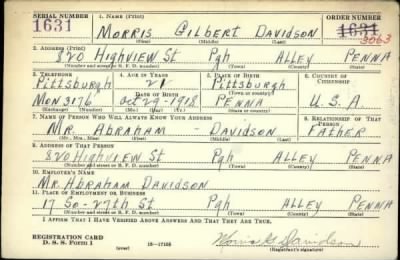 SERIAL NUMBER 1. NAME (Print) ORDER NUMBER
1631 MORRIS GILBERT DAVIDSON 1631 3063
(First) (Middle) (Last)
2. ADDRESS (Print)
820 HIGHVIEW ST Pgh ALLEY PENNA
(Number and street or R. F. D. number) (Town) (County) (State)
3. TELEPHONE 4. AGE IN YEARS 5. PLACE OF BIRTH 6. COUNTRY OF CITIZENSHIP
Pittsburgh 21 Pittsburgh
DATE OF BIRTH (Town or county)
MON 3176 Oct 29 - 1918 PENNA U.S.A.
(Exchange) (Number) (Mo.) (Day) (Yr.) (State or country)
7. NAME OF PERSON WHO WILL ALWAYS KNOW YOUR ADDRESS 8. RELATIONSHIP OF THAT PERSON
MR. ABRAHAM - DAVIDSON FATHER
(Mr., Mrs., Miss) (First) (Middle) (Last)
9. ADDRESS OF THAT PERSON
820 HIGHVIEW St Pgh ALLEY PENNA
(Number and street or R. F. D. number) (Town) (County) (State)
10. EMPLOYER'S NAME
MR. ABRAHAM DAVIDSON
11. PLACE OF EMPLOYMENT OR BUSINESS
17 SO-27th ST Pgh ALLEY PENNA
(Number and street or R. F. D. number) (Town) (County) (State)
I AFFIRM THAT I HAVE VERIFIED ABOVE ANSWERS AND THAT THEY ARE TRUE.
REGISTRATION CARD
D. S. S. Form 1 (over) 16-17105 Morris G. Davidson
(Registrant's signature)